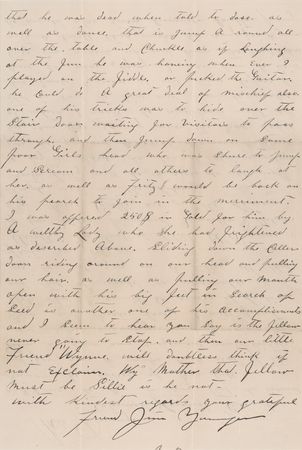 that he was dead when told to doso. as
well as dance. that is jump A round all
over the table and Chuckle as if Laughing
at the fun he was haveing when Ever I
played on the fiddle, or picked the Guitar,
he could do A great deal of mischief also.
one of his tricks was to hide over the
Stair doors waiting for visitors to pass
through, and then jump down on Some
poor Girls head, who was Shure to jump
and Scream and all others to laugh at
her. as well as fritz would be back on
his pearch to join in the merriment.
I was offered 250$ in Gold for him by
A welthy Lady who He had frightened
as described Above. Sliding down the Cellar
doors rideing around on our head and pulling
our hair, as well as pulling our Mouth
open with his big feet in Search of
Seed is another one of his Accomplishments
and I Seem to hear you Say is the fellow
never going to Stop. and then our little
Friend "Wynne" will doubtless think if
not Exclaim. Wy Mother that fellow
Must be Sillie is he not.
With kindest regards your grateful
Friend Jim Younger